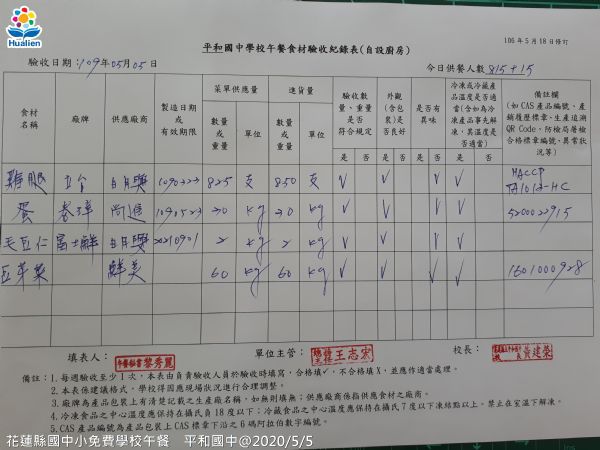 Hualien
106年5月18日修訂
平和國中學校午餐食材驗收紀錄表(自設廚房)
驗收日期:109年05月05日
今日供餐人數815+15
食材名稱
廠牌
供應廠商
製造日期或有效期限
菜單供應量
進貨量
數量或重量
單位
數量或重量
單位
驗收數量、重量是否符合規定
外觀(含包裝)是否良好
是否有異味
冷凍或冷藏產品溫度是否適當(含如為冷凍產品事先解凍,其溫度是否適當)
備註欄
(如CAS產品編號、產銷履歷標章、生產追溯QR Code、防檢局屠檢合格標章編號、異常狀況等)
是 否 是 否 是 否 是 否
雞腿 825 支 850 支 √ √ √ √ HACCP
蛋 20 kg 20 kg √ √ √ √ 5200022915
毛豆仁 富士鮮 20210901 2 kg 2 kg √ √ √ √
豆芽菜 鮮美 60 kg 60 kg √ √ √ √ 1601000928
填表人: 午餐秘書 黎秀麗
單位主管: 王志宏
校長: 黃建榮
備註:1.每週驗收至少1次,本表由負責驗收人員於驗收時填寫,合格填√,不合格填X,並應作適當處理。
2.本表係建議格式,學校得因應現場狀況進行合理調整。
3.廠牌為產品包裝上有清楚記載之生產廠名稱,如無則填無;供應廠商係指供應食材之廠商。
4.冷凍食品之中心溫度應保持在攝氏負18度以下;冷藏食品之中心溫度應保持在攝氏7度以下凍結點以上。禁止在室溫下解凍。
5.CAS產品編號為產品包裝上CAS標章下沿之6碼阿拉伯數字編號。
花蓮縣國中小免費學校午餐 平和國中@2020/5/5